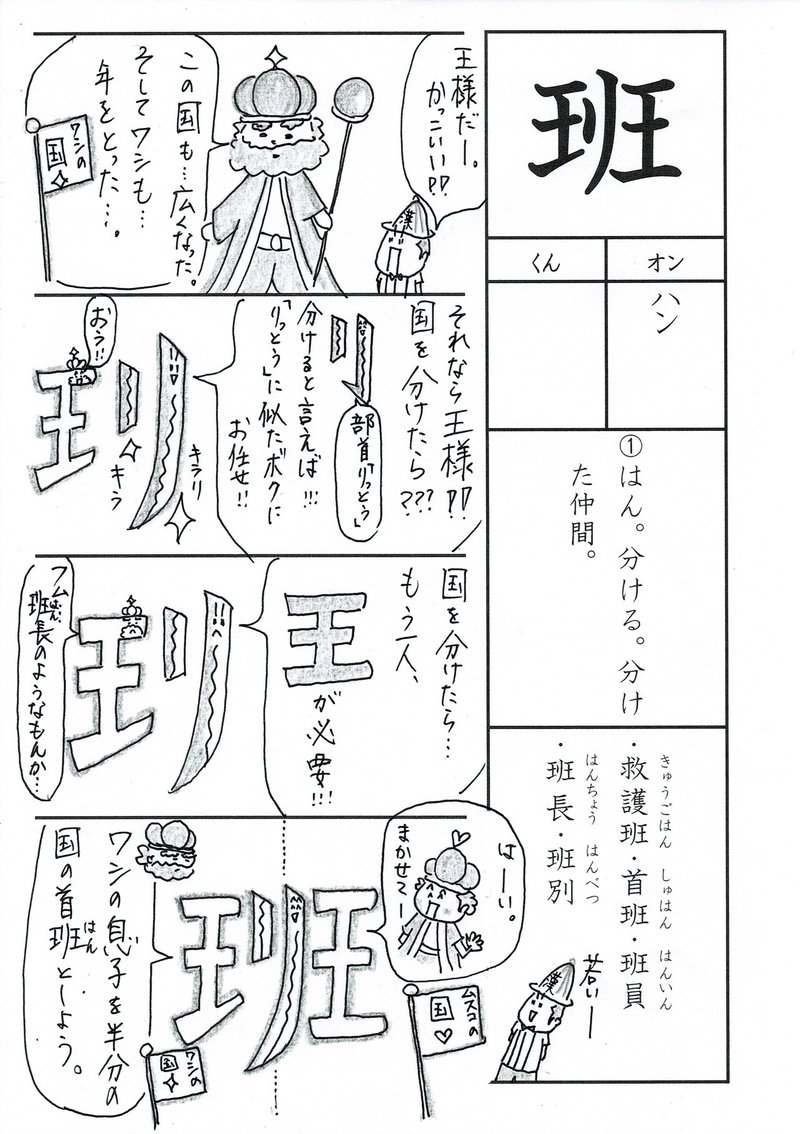 班
オン
くん
ハン
①はん。分ける。分け
た仲間。
きゅうごはん しゅはん はんいん
・救護班・首班・班員
はんちょう はんべつ
・班長・班別
王様だー。
かっこいい!?
漢
この国も…広くなった。
そしてワシも…
年をとった…。
ワシの
国
それなら王様!?
国を分けたら???
部首「りっとう」
分けると言えば!!!
「りっとう」に似たボクに
お任せ!!
キラリ
キラ
おう!!
王リ
国を分けたら…
もう一人、
王
が必要!!!
王リ
フム
はん
班長のようなもんか…
はーい。
まかせてー
班
ムスコの
国
ワシの息子を半分の
はん
国の首班としよう。
ワシの
国
若いー
漢